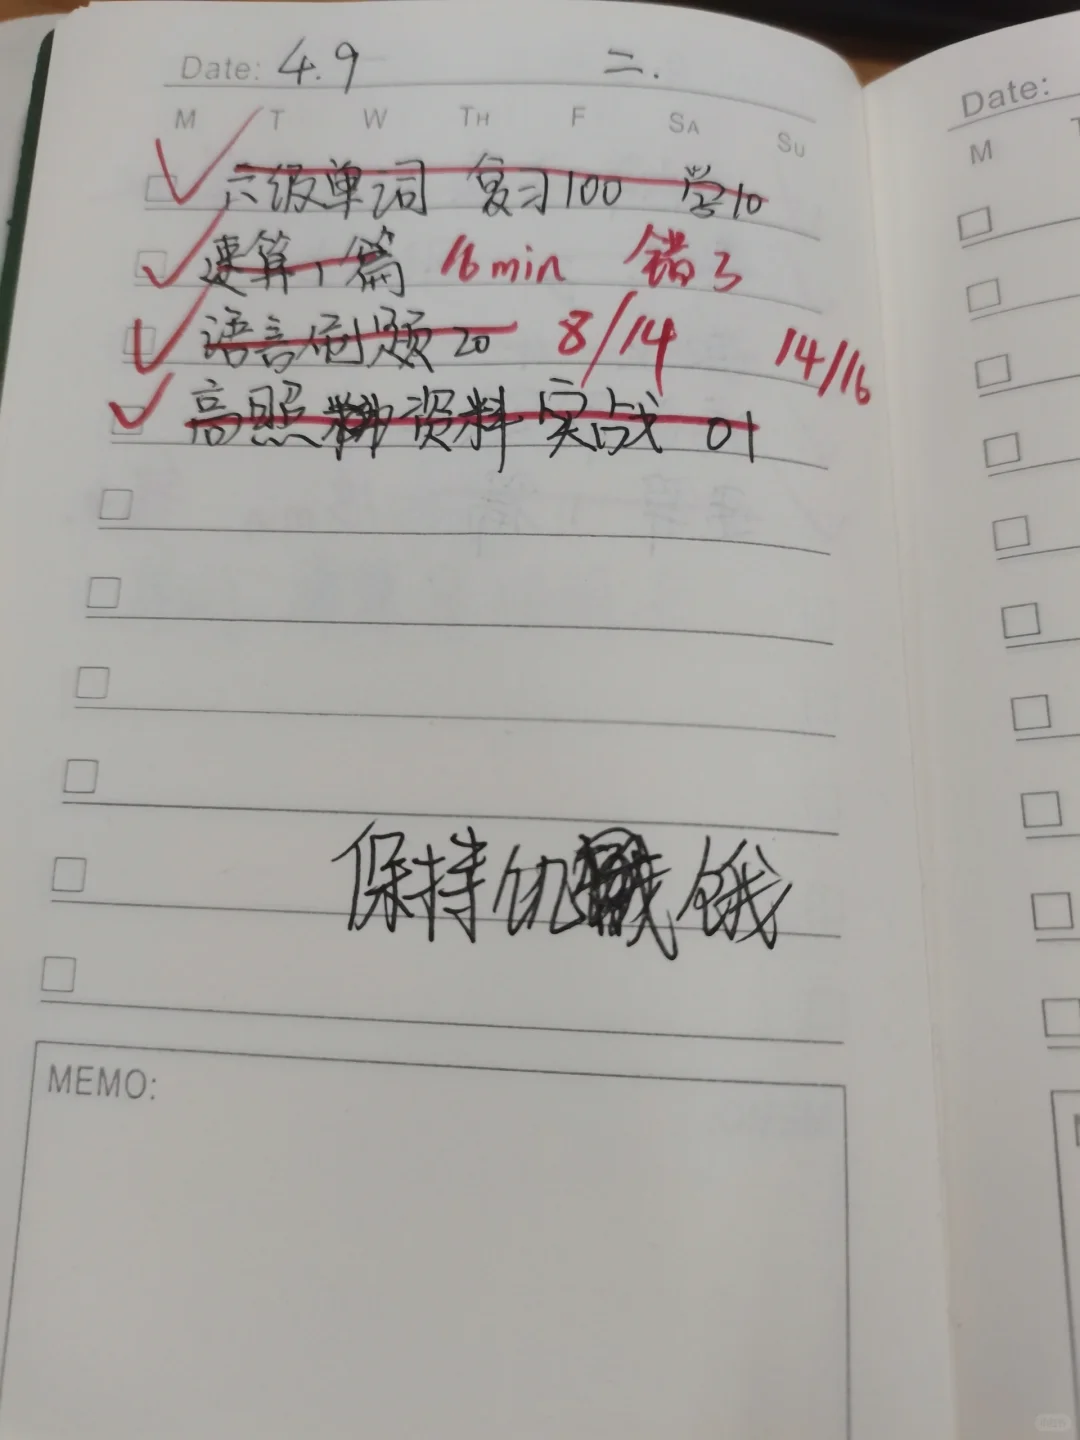 Date: 4.9 二.
M T W TH F SA SU
六级单词 复习100 学10
速算1篇 16min 错3
语言刷题20 8/14 14/16
高照 资料 实战 01
保持饥 饿
MEMO:
Date:
M